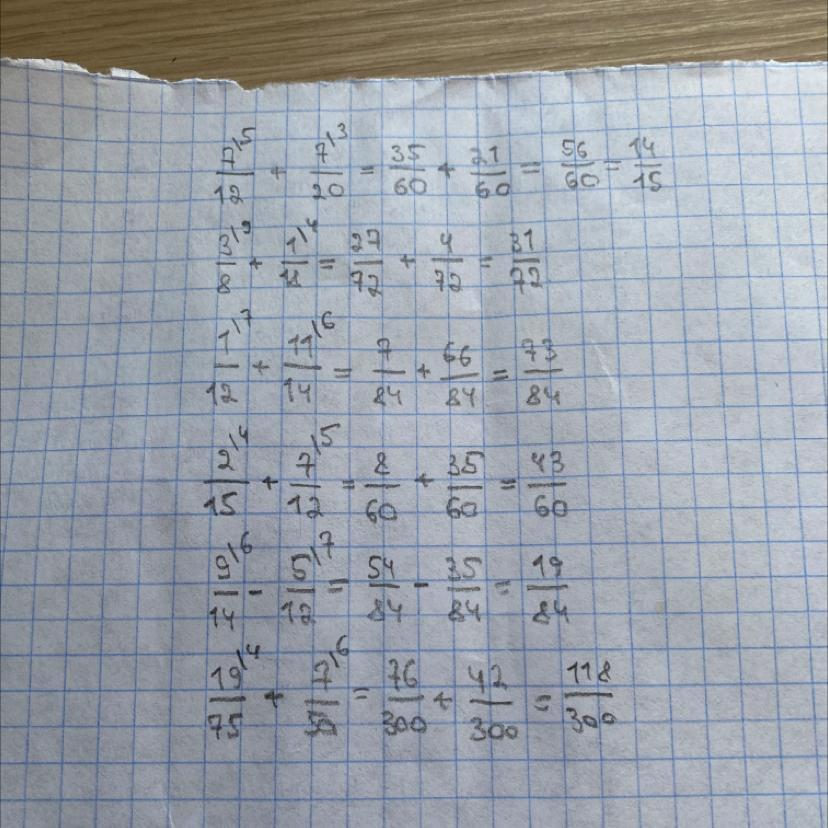 7\5/12 + 7\3/20 = 35/60 + 21/60 = 56/60 = 14/15
3\9/8 + 1\4/18 = 27/72 + 4/72 = 31/72
1\7/12 + 11\6/14 = 7/84 + 66/84 = 73/84
2\4/15 + 7\5/12 = 8/60 + 35/60 = 43/60
9\6/14 - 5\7/12 = 54/84 - 35/84 = 19/84
19\4/75 + 7\6/50 = 76/300 + 42/300 = 118/300